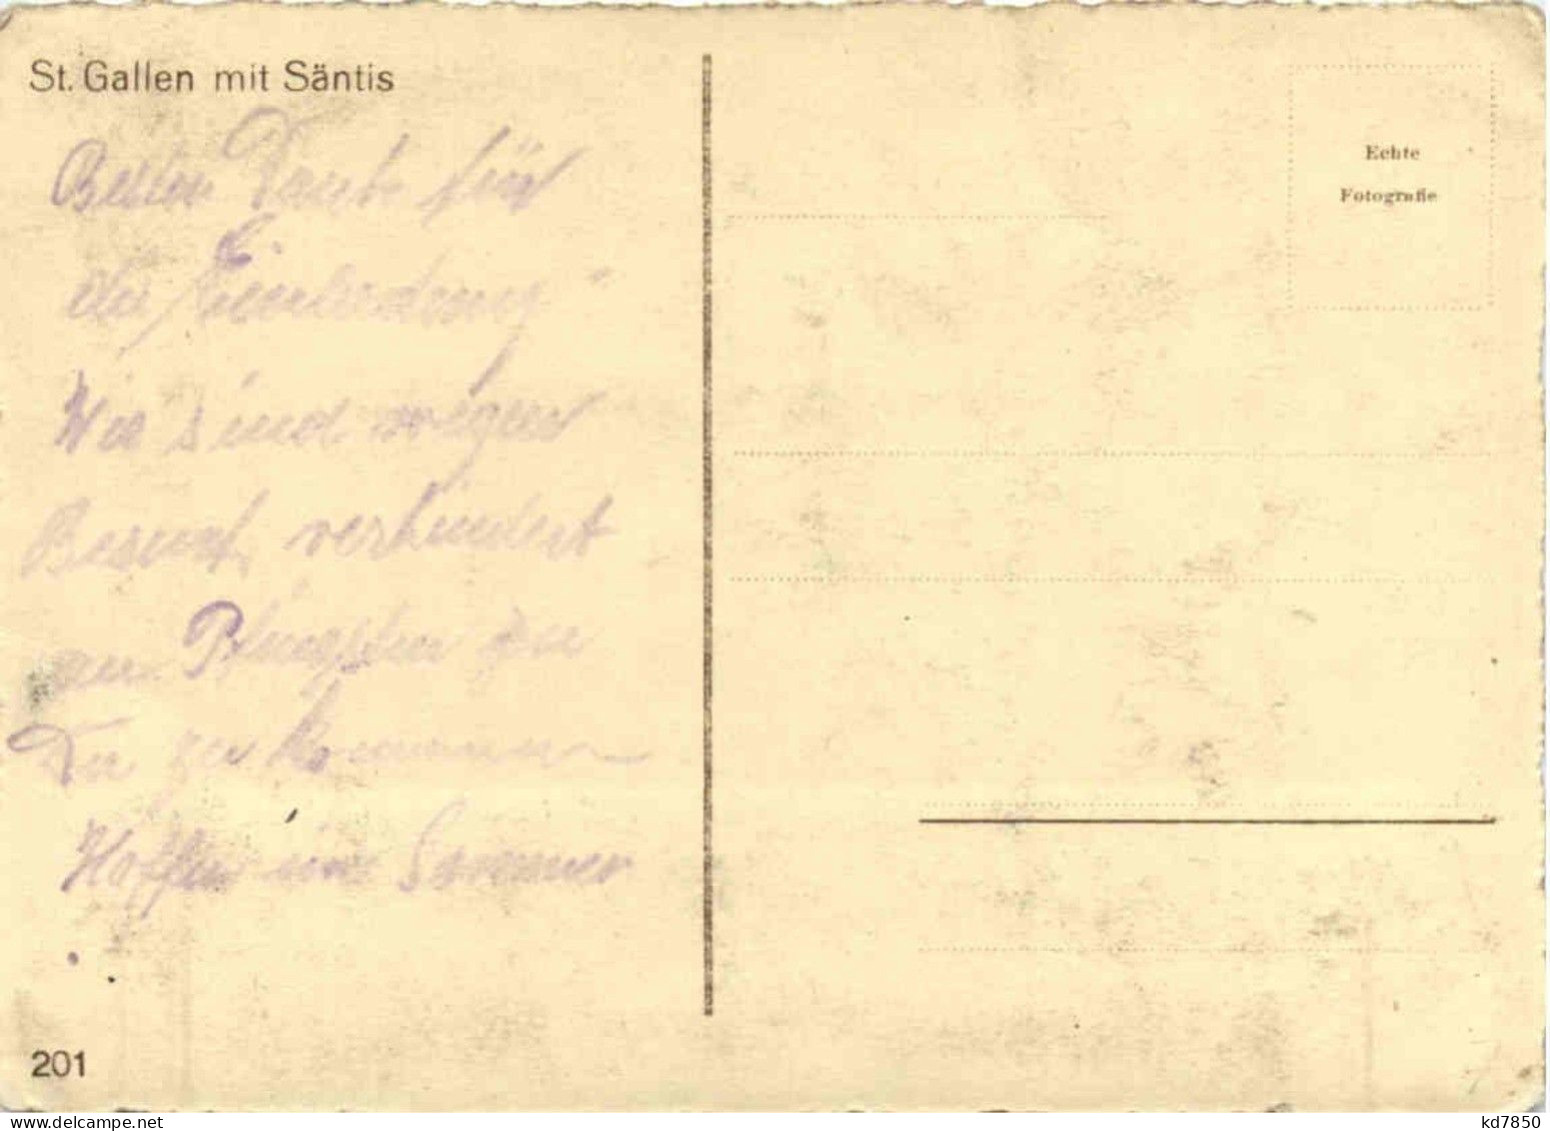 St. Gallen mit Säntis
Besten Dank für
die Einladung
Wir sind wegen
Besuch verhindert
an Pfingsten zu
Dir zu kommen
Hoffen im Sommer
201
Echte
Fotografie
delcampe.net
kd7850